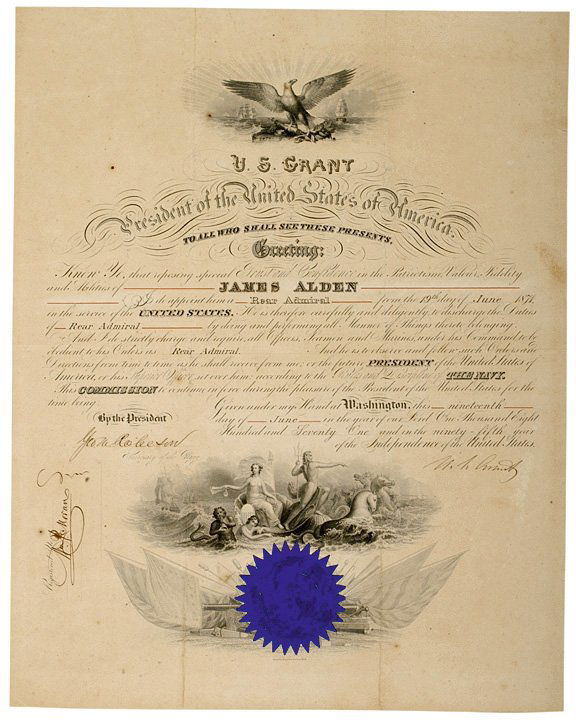 U. S. GRANT
President of the United States of America.
TO ALL WHO SHALL SEE THESE PRESENTS,
Greeting:
Know Ye, that reposing special Trust and Confidence in the Patriotism, Valour, Fidelity
and Abilities of JAMES ALDEN
I do appoint him a Rear Admiral from the 19th day of June 1871,
in the service of the UNITED STATES. He is therefore carefully and diligently to discharge the Duties
of Rear Admiral by doing and performing all Manner of Things thereto belonging.
And I do strictly charge and require all Officers, Seamen and Marines, under his Command to be
obedient to his Orders as Rear Admiral. And he is to observe and follow such Orders and
Directions from time to time as he shall receive from me, or the future PRESIDENT of the United States of
America, or his Officer set over him according to the THE NAVY.
This COMMISSION to continue in force during the pleasure of the President of the United States for the
time being.
Given under my Hand at Washington, this nineteenth
By the President
day of June in the year of our Lord One Thousand Eight
Hundred and Seventy One and in the ninety-fifth year
of the Independence of the United States.
Secretary of the Navy
Registered